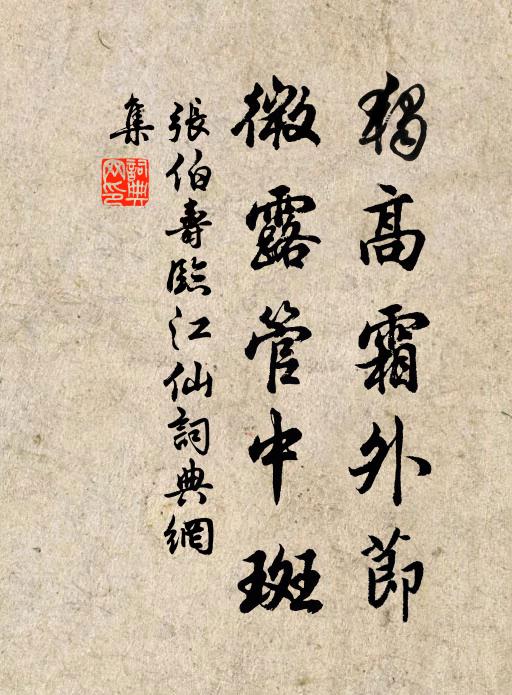 獨高霜外節
微露管中斑
張伯壽臨江仙詞典網
集
詞典網印